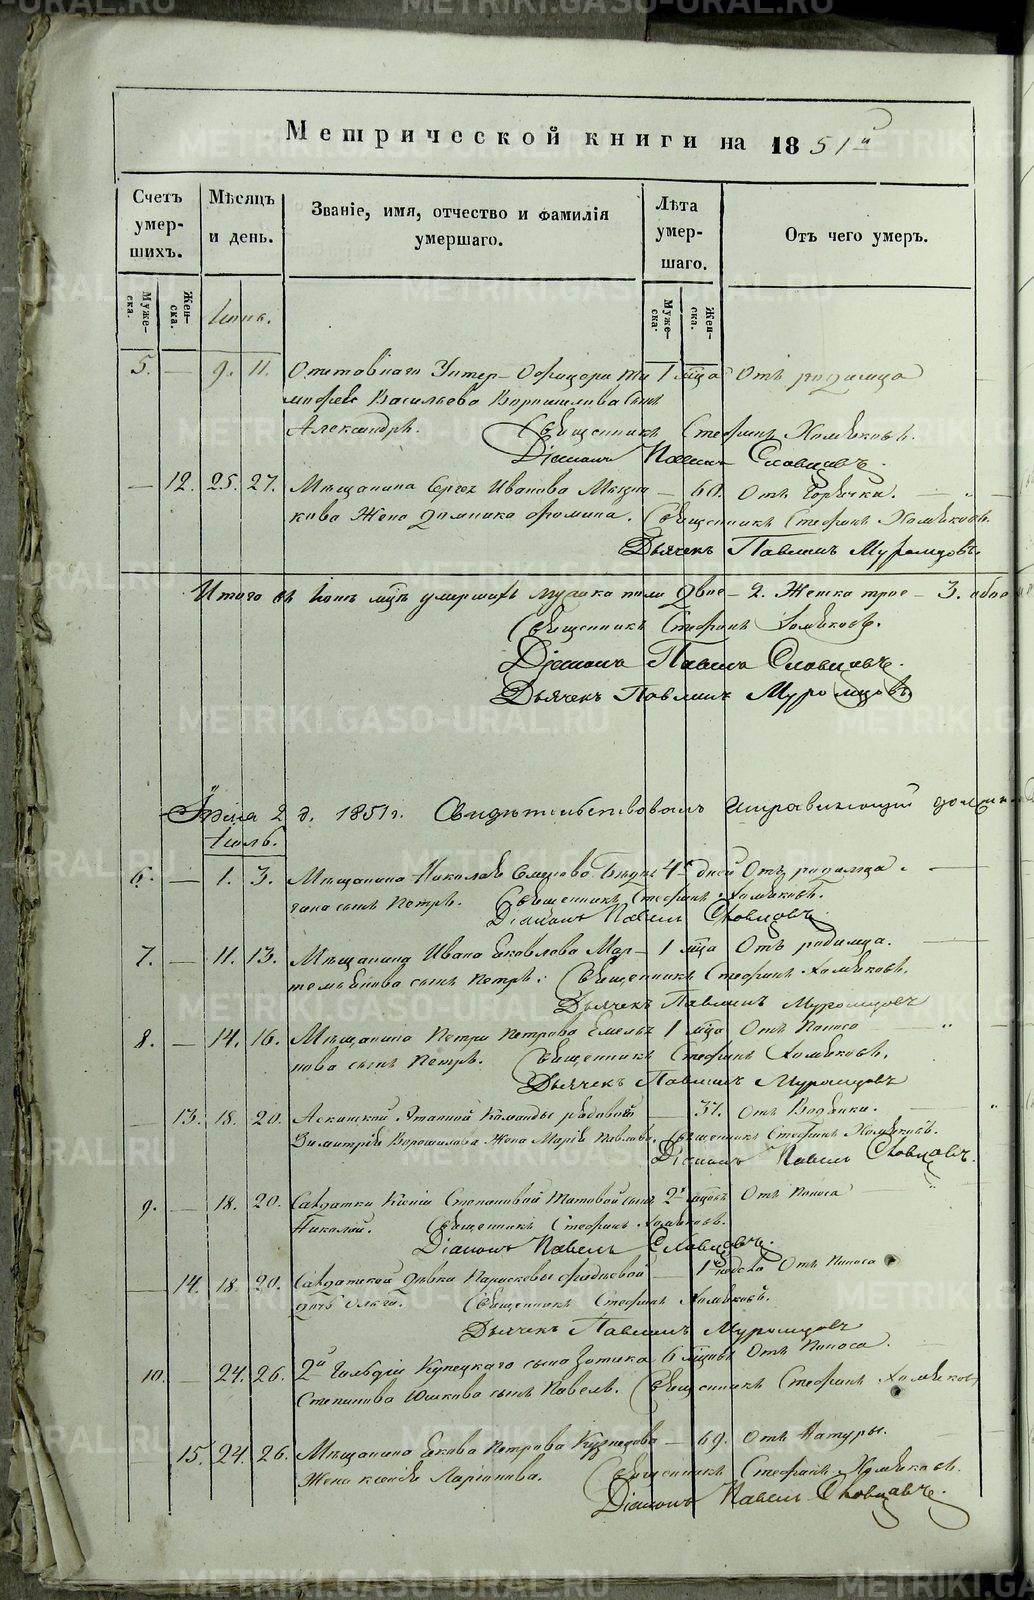 Метрической книги на 1851й
Счетъ умер-шихъ.
Мѣсяцъ и день.
Званіе, имя, отчество и фамилія умершаго.
Лѣта умер-шаго.
Отъ чего умеръ.
Муже-ска.
Жен-ска.
Іюнь.
Муже-ска.
Жен-ска.
5. — 9. 11. Отставнаго Унтер-Офицера Ти 1 мца Отъ родимца
мофея Васильева Ворошилова сынъ
Александръ. Священникъ Стефанъ Хомяковъ.
Діаконъ Павелъ Словцовъ.
— 12. 25. 27. Мѣщанина Сергея Иванова — 60. Отъ Горячки.
кова Жена Домника Фомина. Священникъ Стефанъ Хомяковъ.
Дьячекъ Павлинъ Муромцовъ.
Итого въ Іюнѣ мцѣ умершихъ мужска пола двое — 2. Женска трое — 3. обое
Священникъ Стефанъ Хомяковъ.
Діаконъ Павелъ Словцовъ.
Дьячекъ Павлинъ Муромцовъ
Іюля 2 д. 1851г. Свидѣтельствовалъ Исправляющій должн
Іюль.
6. — 1. 3. Мѣщанина Николая 4 дней Отъ родимца.
сынъ Петръ. Священникъ Стефанъ Хомяковъ.
Діаконъ Павелъ Словцовъ
7. — 11. 13. Мѣщанина Ивана Яковлева Мар- 1 мца Отъ родимца.
темьянова сынъ Петръ. Священникъ Стефанъ Хомяковъ.
Дьячекъ Павлинъ Муромцовъ
8. — 14. 16. Мѣщанина Петра Петрова Емелья 1 мца Отъ Поноса
нова сынъ Петръ. Священникъ Стефанъ Хомяковъ.
Дьячекъ Павлинъ Муромцовъ
— 13. 18. 20. Этапной Команды рядовой — 37. Отъ Водянки.
Димитрія Ворошилова Жена Марія Павлова. Священникъ Стефанъ Хомяковъ.
Діаконъ Павелъ Словцовъ.
9. — 18. 20. Солдатки Ксеніи Степановой Титовой сынъ 2 мцовъ Отъ Поноса
Николай. Священникъ Стефанъ Хомяковъ.
Діаконъ Павелъ Словцовъ.
— 14. 18. 20. Солдатской дѣвки Парасковьи — 1 года Отъ Поноса
дочь Ольга. Священникъ Стефанъ Хомяковъ.
Дьячекъ Павлинъ Муромцовъ
10. — 24. 26. 2й Гильдіи Купецкаго сына Зотика 6 мцовъ Отъ Поноса.
Степанова Юшкова сынъ Павелъ. Священникъ Стефанъ Хомяковъ
— 15. 24. 26. Мѣщанина Якова Петрова Кузнецова — 69. Отъ Натуры.
Жена Ксенія Ларіонова. Священникъ Стефанъ Хомяковъ.
Діаконъ Павелъ Словцовъ.
METRIKI.GASO-URAL.RU